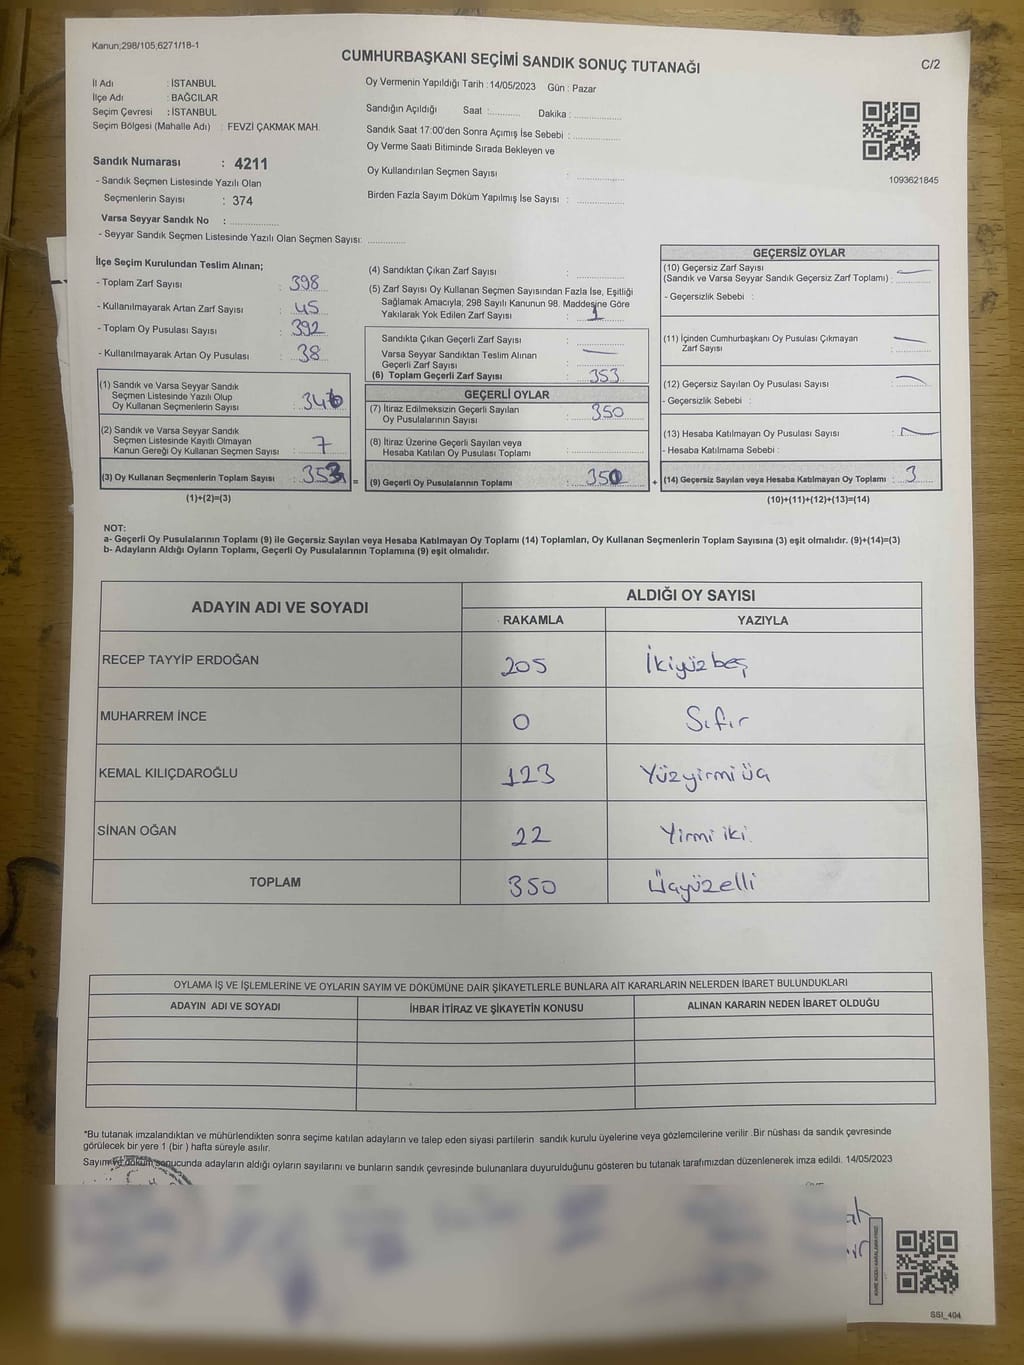 Kanun;298/105,6271/18-1
CUMHURBAŞKANI SEÇİMİ SANDIK SONUÇ TUTANAĞI
C/2
İl Adı : İSTANBUL
İlçe Adı : BAĞCILAR
Seçim Çevresi : İSTANBUL
Seçim Bölgesi (Mahalle Adı) : FEVZİ ÇAKMAK MAH.
Sandık Numarası : 4211
- Sandık Seçmen Listesinde Yazılı Olan
Seçmenlerin Sayısı : 374
Varsa Seyyar Sandık No :
- Seyyar Sandık Seçmen Listesinde Yazılı Olan Seçmen Sayısı:
Oy Vermenin Yapıldığı Tarih : 14/05/2023 Gün : Pazar
Sandığın Açıldığı Saat : Dakika :
Sandık Saat 17:00'den Sonra Açımış İse Sebebi :
Oy Verme Saati Bitiminde Sırada Bekleyen ve
Oy Kullandırılan Seçmen Sayısı :
Birden Fazla Sayım Döküm Yapılmış İse Sayısı :
1093621845
İlçe Seçim Kurulundan Teslim Alınan;
- Toplam Zarf Sayısı : 398
- Kullanılmayarak Artan Zarf Sayısı : 45
- Toplam Oy Pusulası Sayısı : 392
- Kullanılmayarak Artan Oy Pusulası : 38
(1) Sandık ve Varsa Seyyar Sandık
Seçmen Listesinde Yazılı Olup
Oy Kullanan Seçmenlerin Sayısı : 346
(2) Sandık ve Varsa Seyyar Sandık
Seçmen Listesinde Kayıtlı Olmayan
Kanun Gereği Oy Kullanan Seçmen Sayısı : 7
(3) Oy Kullanan Seçmenlerin Toplam Sayısı : 353
(1)+(2)=(3)
=
(4) Sandıktan Çıkan Zarf Sayısı :
(5) Zarf Sayısı Oy Kullanan Seçmen Sayısından Fazla İse, Eşitliği
Sağlamak Amacıyla; 298 Sayılı Kanunun 98. Maddesine Göre
Yakılarak Yok Edilen Zarf Sayısı : 1
Sandıkta Çıkan Geçerli Zarf Sayısı :
Varsa Seyyar Sandıktan Teslim Alınan
Geçerli Zarf Sayısı :
(6) Toplam Geçerli Zarf Sayısı : 353
GEÇERLİ OYLAR
(7) İtiraz Edilmeksizin Geçerli Sayılan
Oy Pusulalarının Sayısı : 350
(8) İtiraz Üzerine Geçerli Sayılan veya
Hesaba Katılan Oy Pusulası Toplamı :
(9) Geçerli Oy Pusulalarının Toplamı : 350
+
GEÇERSİZ OYLAR
(10) Geçersiz Zarf Sayısı
(Sandık ve Varsa Seyyar Sandık Geçersiz Zarf Toplamı) :
- Geçersizlik Sebebi :
(11) İçinden Cumhurbaşkanı Oy Pusulası Çıkmayan
Zarf Sayısı :
(12) Geçersiz Sayılan Oy Pusulası Sayısı :
- Geçersizlik Sebebi :
(13) Hesaba Katılmayan Oy Pusulası Sayısı :
- Hesaba Katılmama Sebebi :
(14) Geçersiz Sayılan veya Hesaba Katılmayan Oy Toplamı : 3
(10)+(11)+(12)+(13)=(14)
NOT:
a- Geçerli Oy Pusulalarının Toplamı (9) ile Geçersiz Sayılan veya Hesaba Katılmayan Oy Toplamı (14) Toplamları, Oy Kullanan Seçmenlerin Toplam Sayısına (3) eşit olmalıdır. (9)+(14)=(3)
b- Adayların Aldığı Oyların Toplamı, Geçerli Oy Pusulalarının Toplamına (9) eşit olmalıdır.
ADAYIN ADI VE SOYADI
ALDIĞI OY SAYISI
RAKAMLA YAZIYLA
RECEP TAYYİP ERDOĞAN 205 İkiyüzbeş
MUHARREM İNCE 0 Sıfır
KEMAL KILIÇDAROĞLU 123 Yüzyirmiüç
SİNAN OĞAN 22 Yirmi iki
TOPLAM 350 Üçyüzelli
OYLAMA İŞ VE İŞLEMLERİNE VE OYLARIN SAYIM VE DÖKÜMÜNE DAİR ŞİKAYETLERLE BUNLARA AİT KARARLARIN NELERDEN İBARET BULUNDUKLARI
ADAYIN ADI VE SOYADI İHBAR İTİRAZ VE ŞİKAYETİN KONUSU ALINAN KARARIN NEDEN İBARET OLDUĞU
*Bu tutanak imzalandıktan ve mühürlendikten sonra seçime katılan adayların ve talep eden siyasi partilerin sandık kurulu üyelerine veya gözlemcilerine verilir .Bir nüshası da sandık çevresinde
görülecek bir yere 1 (bir ) hafta süreyle asılır.
Sayım ve döküm sonucunda adayların aldığı oyların sayılarını ve bunların sandık çevresinde bulunanlara duyurulduğunu gösteren bu tutanak tarafımızdan düzenlenerek imza edildi. 14/05/2023
SSİ_404